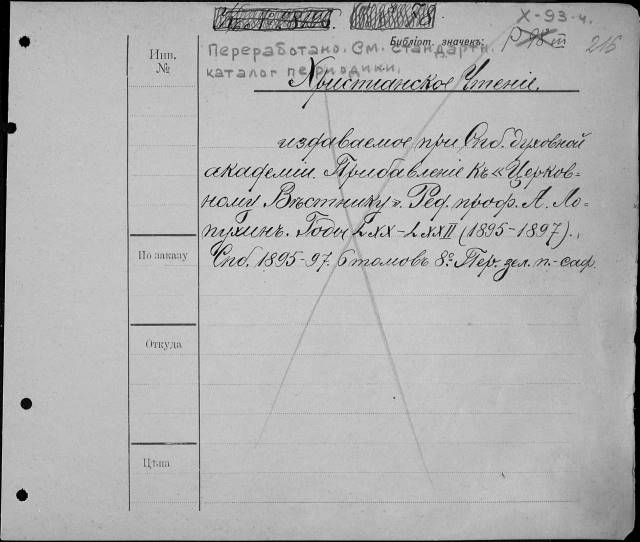 X-93-4.
Библіот. значекъ:
216
Переработано. См. стандартн.
каталог периодики.
Инв.
№
Христіанское Чтеніе.
издаваемое при Спб. духовной
академіи. Прибавленіе къ «Церков-
ному Вѣстнику». Ред. проф. А. Ло-
пухинъ. Годы LXX-LXXII (1895-1897).
По заказу
Спб. 1895-97. 6 томовъ 8º. Пер. зел. п.-саф.
Откуда
Цѣна